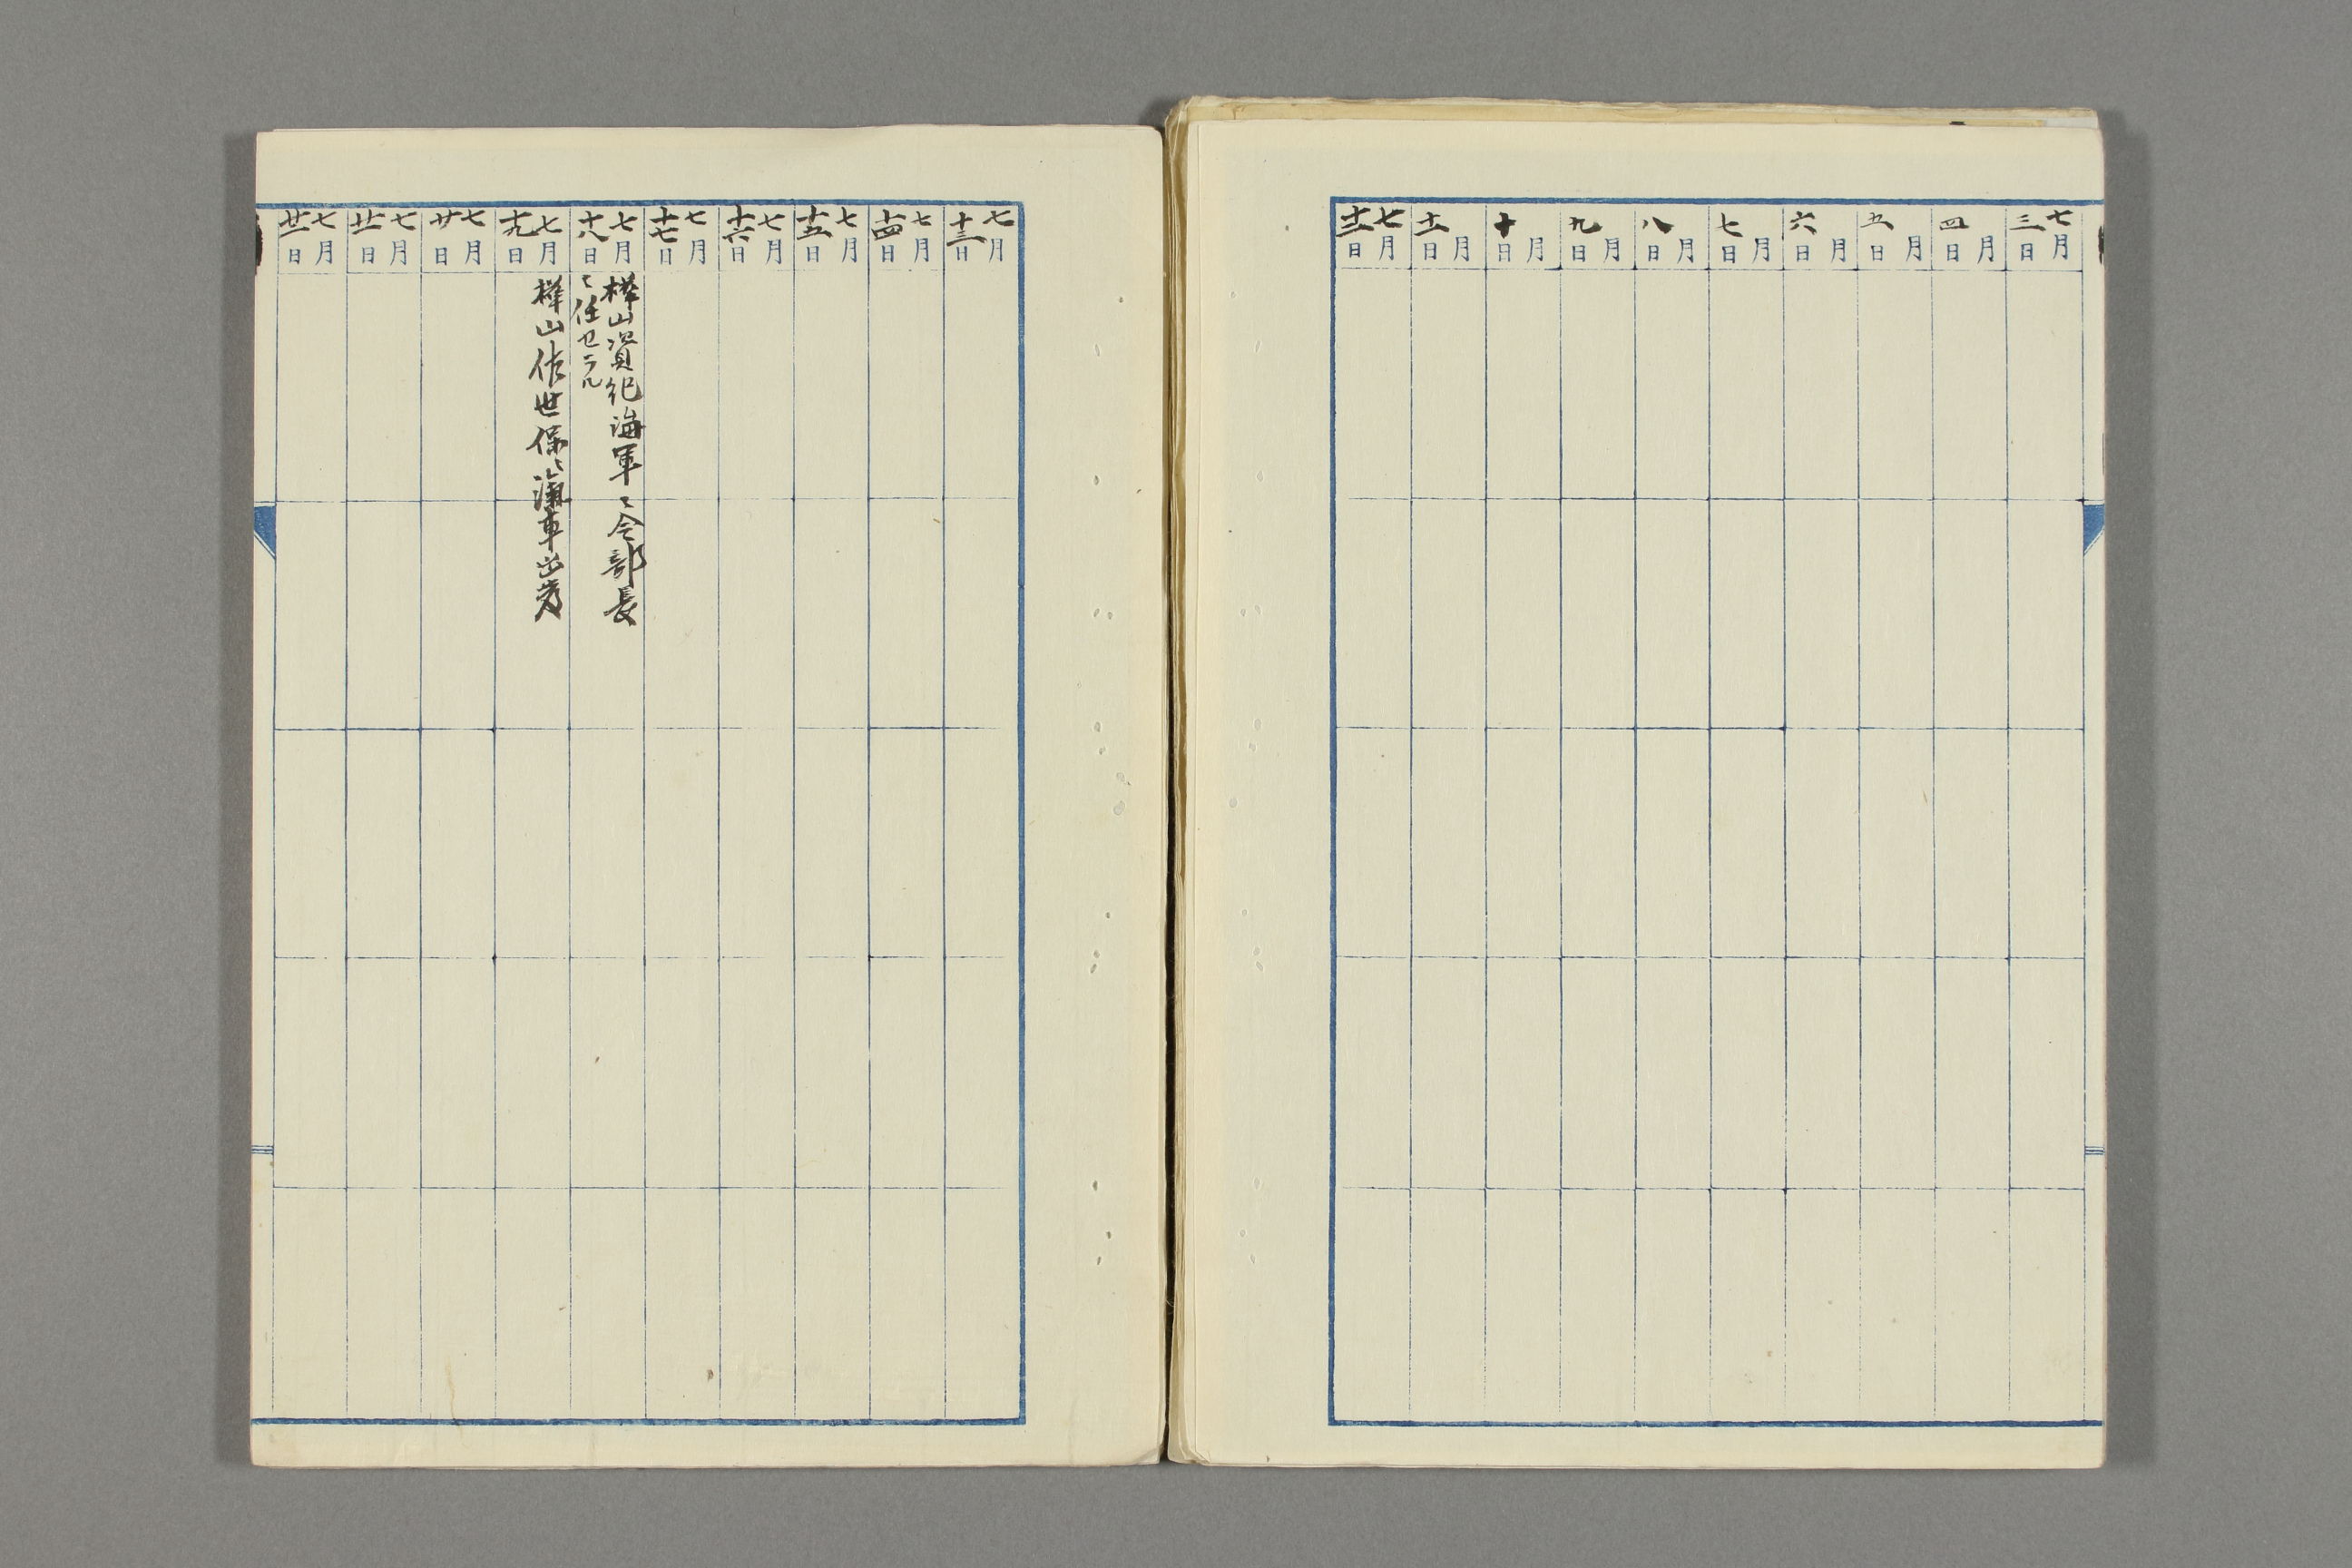 七月三日
月四日
月五日
月六日
月七日
月八日
月九日
月十日
月十一日
七月十二日
七月十三日
七月十四日
七月十五日
七月十六日
七月十七日
七月十八日
樺山資紀海軍々令部長
ニ任セラル
七月十九日
樺山佐世保ヘ滊車出発
七月廿日
七月廿一日
七月廿二日